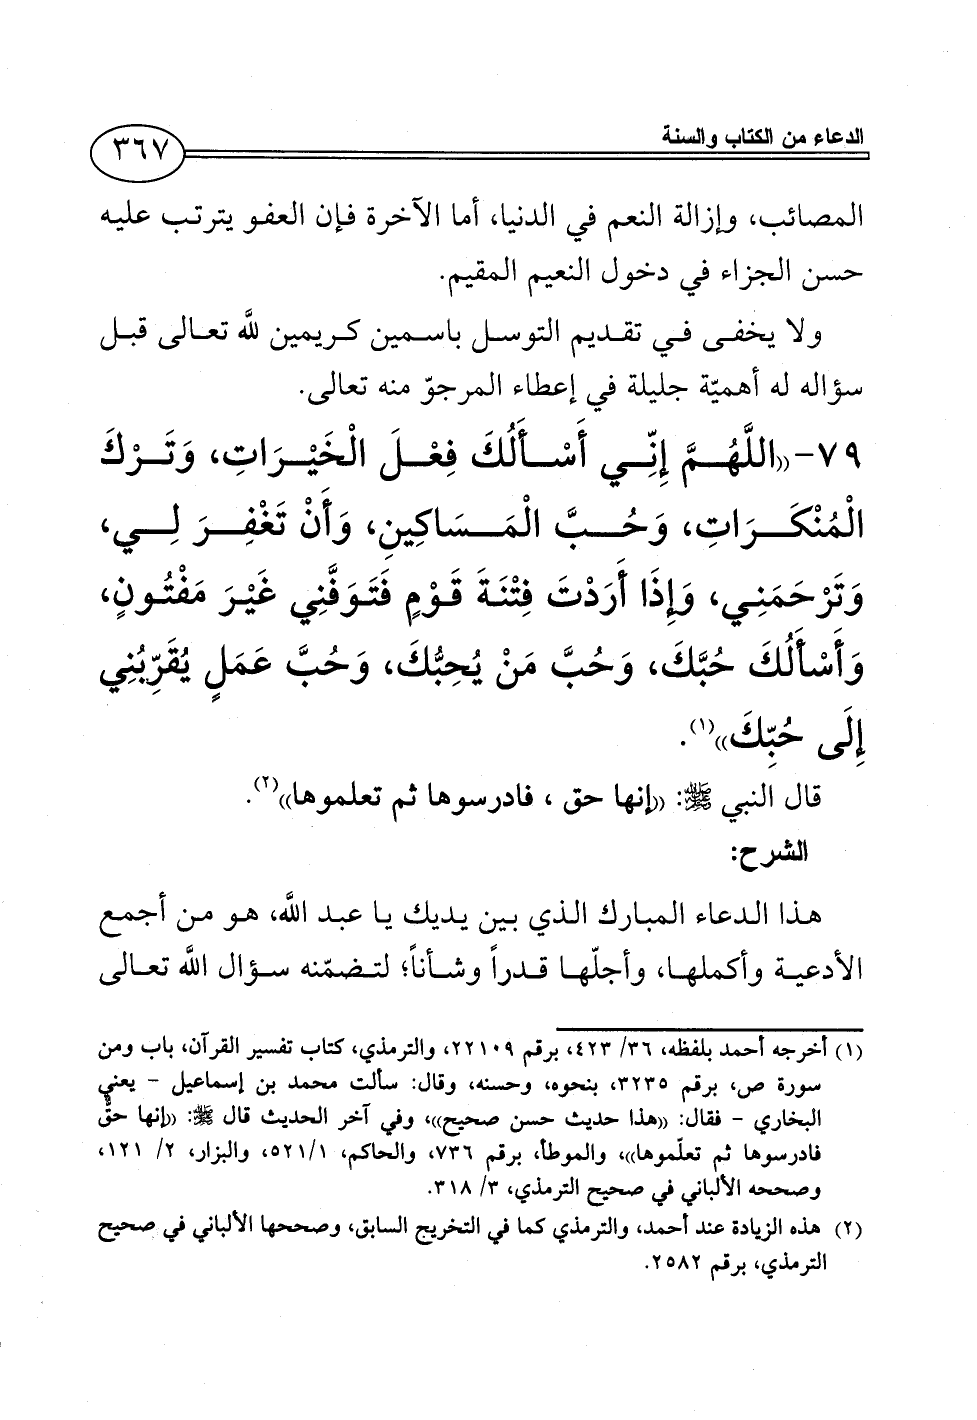 الدعاء من الكتاب والسنة
٣٦٧
المصائب، وإزالة النعم في الدنيا، أما الآخرة فإن العفو يترتب عليه
حسن الجزاء في دخول النعيم المقيم.
ولا يخفى في تقديم التوسل باسمين كريمين لله تعالى قبل
سؤاله له أهميّة جليلة في إعطاء المرجوّ منه تعالى.
٧٩- ((اللَّهُمَّ إِنِّي أَسْأَلُكَ فِعْلَ الْخَيْرَاتِ، وَتَرْكَ
الْمُنْكَرَاتِ، وَحُبَّ الْمَسَاكِينِ، وَأَنْ تَغْفِرَ لِي،
وَتَرْحَمَنِي، وَإِذَا أَرَدْتَ فِتْنَةَ قَوْمٍ فَتَوَفَّنِي غَيْرَ مَفْتُونٍ،
وَأَسْأَلُكَ حُبَّكَ، وَحُبَّ مَنْ يُحِبُّكَ، وَحُبَّ عَمَلٍ يُقَرِّبُنِي
إِلَى حُبِّكَ))(١).
قال النبي ﷺ: ((إنها حق ، فادرسوها ثم تعلموها))(٢).
الشرح:
هذا الدعاء المبارك الذي بين يديك يا عبد الله، هو من أجمع
الأدعية وأكملها، وأجلّها قدراً وشأناً؛ لتضمّنه سؤال الله تعالى
(١) أخرجه أحمد بلفظه، ٣٦/ ٤٢٣، برقم ٢٢١٠٩، والترمذي، كتاب تفسير القرآن، باب ومن
سورة ص، برقم ٣٢٣٥، بنحوه، وحسنه، وقال: سألت محمد بن إسماعيل – يعني
البخاري – فقال: ((هذا حديث حسن صحيح))، وفي آخر الحديث قال ﷺ: ((إنها حقٌّ
فادرسوها ثم تعلّموها))، والموطأ، برقم ٧٣٦، والحاكم، ١/ ٥٢١، والبزار، ٢/ ١٢١،
وصححه الألباني في صحيح الترمذي، ٣/ ٣١٨.
(٢) هذه الزيادة عند أحمد، والترمذي كما في التخريج السابق، وصححها الألباني في صحيح
الترمذي، برقم ٢٥٨٢.